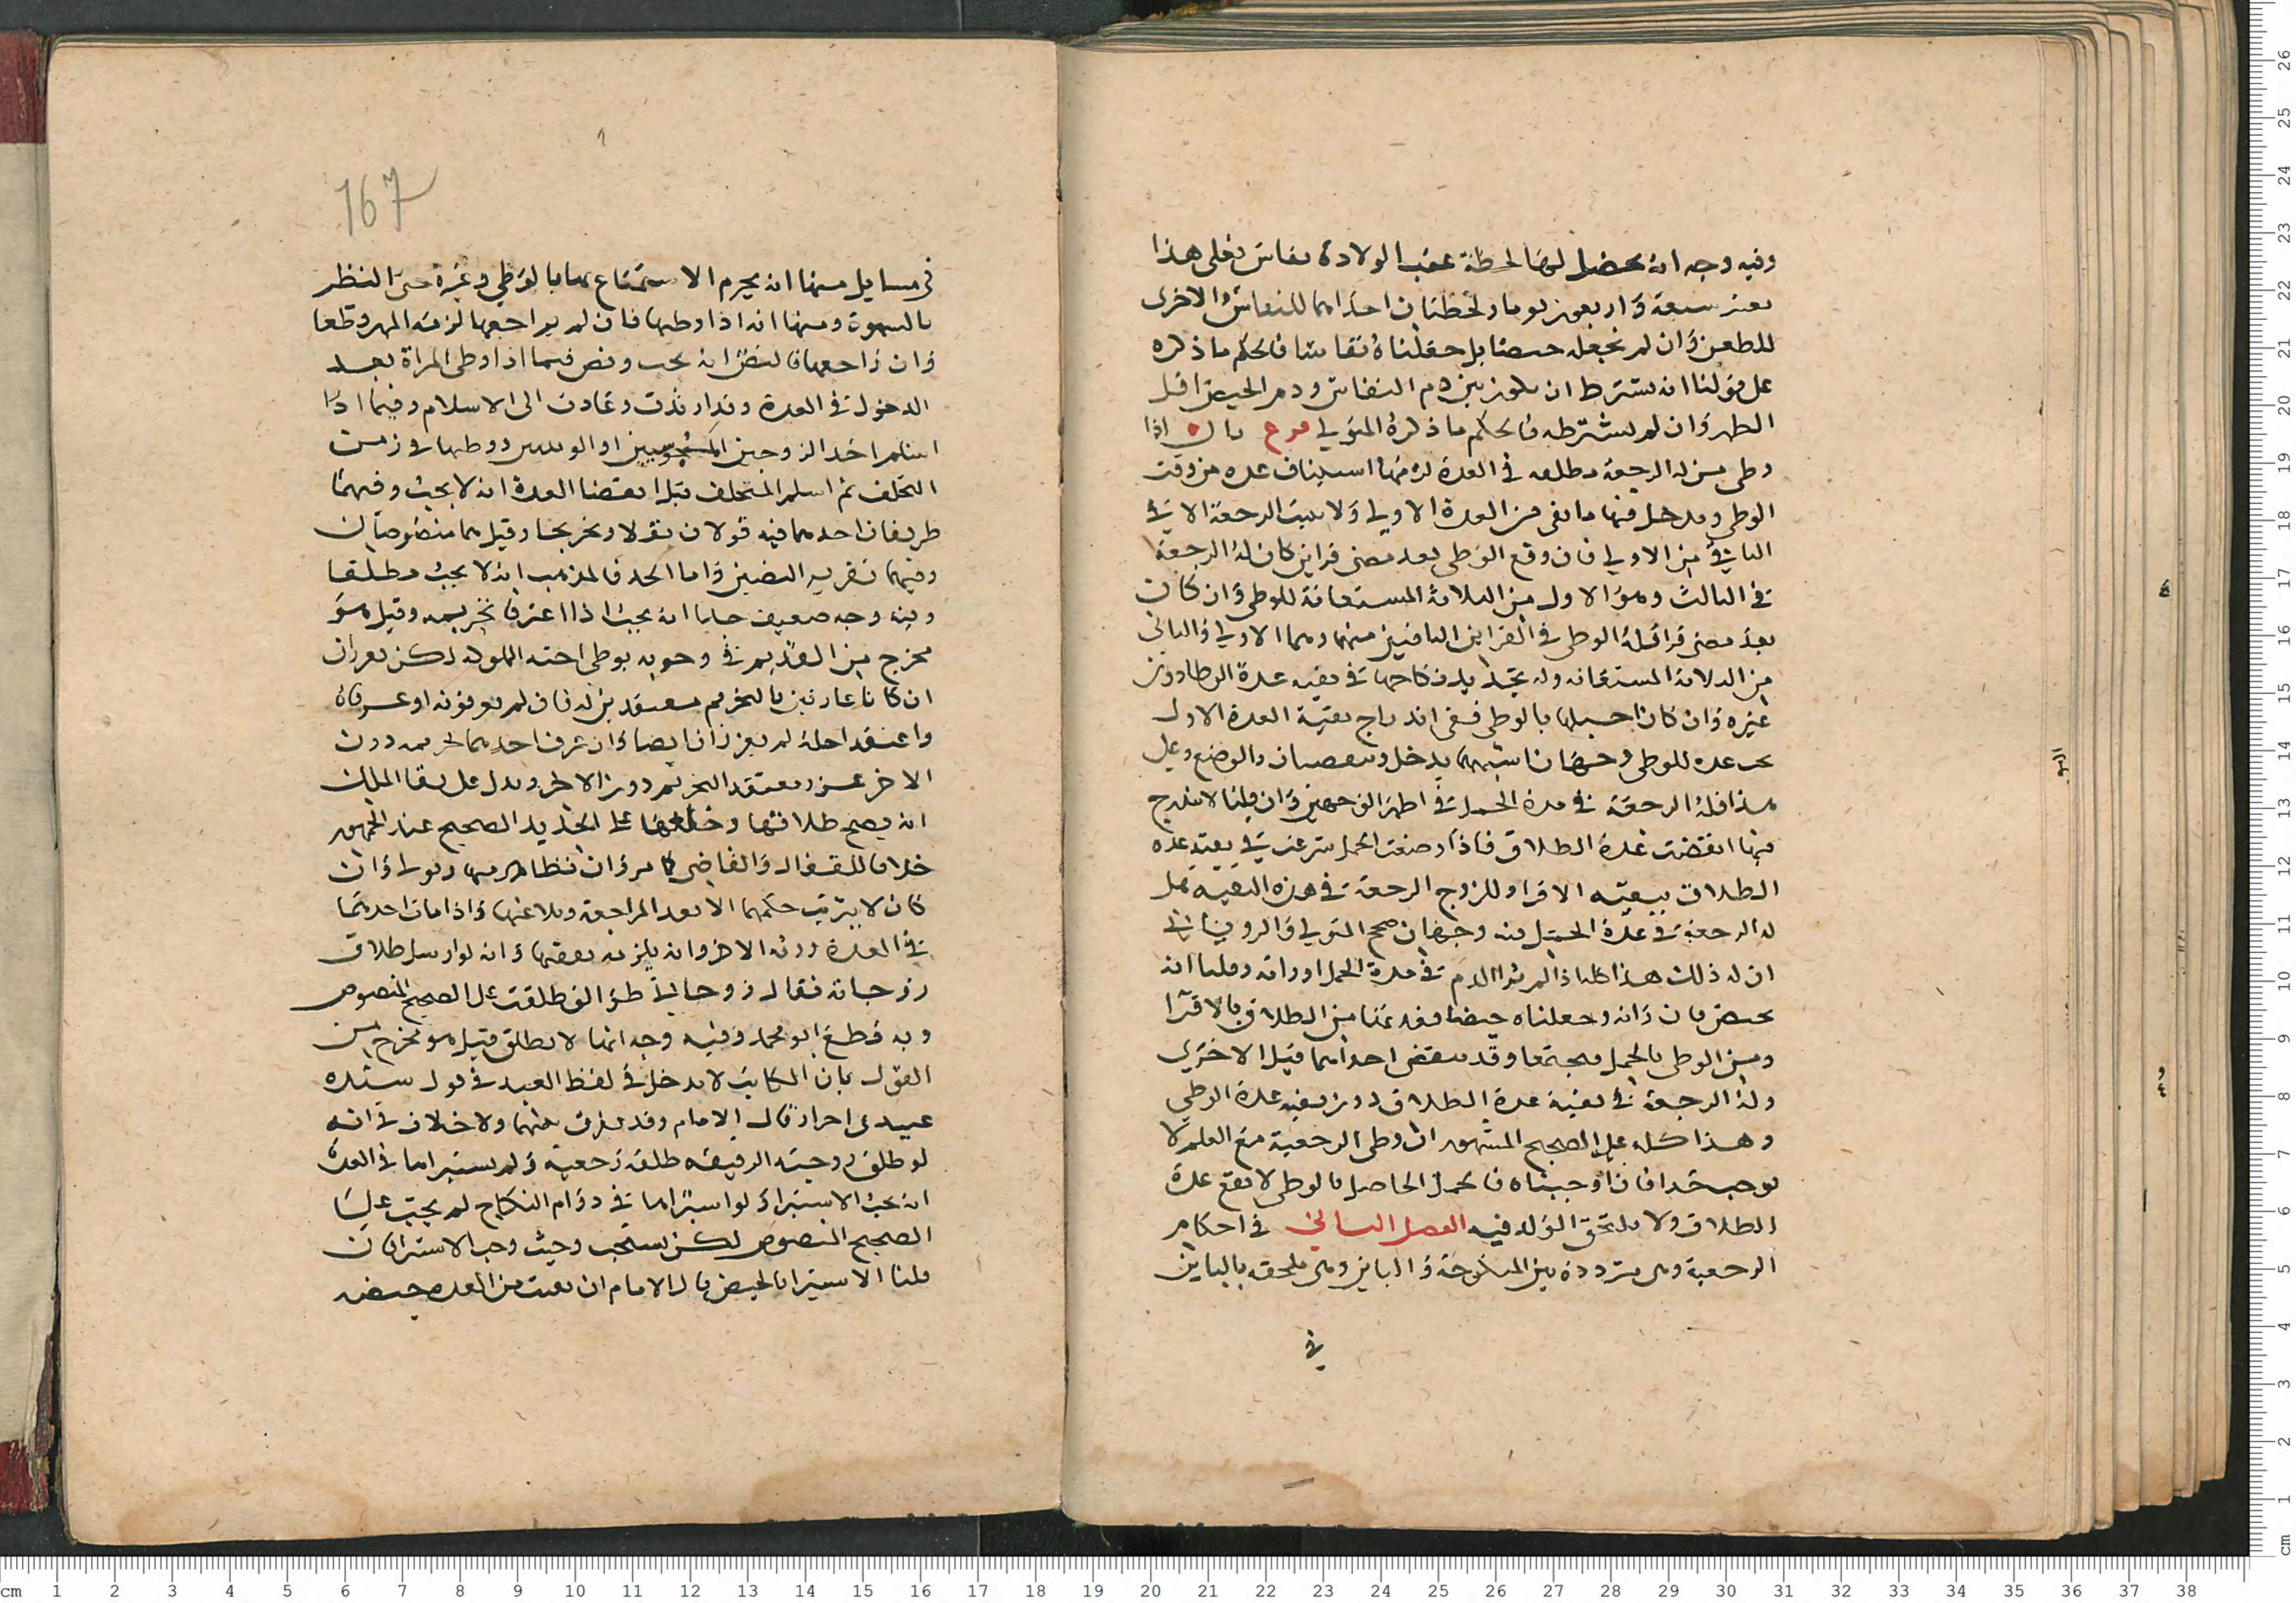 وفيه وجه انه يحصل لها لحظة عقب الولادة نفاس فعلى هذا
يعتبر سبعة واربعون يوما ولحظتان احداهما للنفاس والاخرى
للطعن وان لم نجعله حيضا بل جعلناه نفاسا فالحكم ما ذكره
على قولنا انه يشترط ان يكون بين دم النفاس ودم الحيض اقل
الطهر وان لم يشترطه فالحكم ما ذكره المتولي فرع قال اذا
وطى من له الرجعة مطلقه في العدة لزمها استيناف عده من وقت
الوطي ويدخل فيها ما بقى من العدة الاولى ولا يثبت الرجعة الا في
الباقي من الاولى فان وقع الوطي بعد مضى قراين كان له الرجعة
في الثالث وهو الاول من الثلاثة المستعانفة للوطي وان كان
بعد مضى قرا فله الوطي في القراين الباقيين منهما وهما الاولى والثاني
من الثلاثة المستعانفه وله تجديد نكاحها في بقيه عدة الوطا دون
غيره وان كان احبلها بالوطي ففي اندراج بقية العدة الاول
تحت عده للوطي وجهان اشبههما يدخل وينقضيان بالوضع وعلى
هذا فله الرجعة في مدة الحمل في اظهر الوجهين وان قلنا لا يندرج
فيها انقضت عدة الطلاق فاذا وضعت الحمل شرعت في بقية عده
الطلاق ببقيه الاقرا وللزوج الرجعة في هذه البقيه بل
له الرجعة في عدة الحمل فيه وجهان صحح المتولي والروياني
ان له ذلك هذا كله اذا لم تر الدم في مدة الحمل او راته وقلنا انه
بحيض فان راته وجعلناه حيضا فعدتها من الطلاق بالاقرا
ومن الوطي بالحمل فيجتمعا وقد ينقضى احداهما قبل الاخرى
وله الرجعة في بقية عدة الطلاق دون بقيه عدة الوطي
وهذا كله على الصحيح المشهور ان وطي الرجعية مع العلم لا
يوجب حدا فان اوجبناه فالحمل الحاصل بالوطي لا يقع عدة
الطلاق ولا يلتحق الولد فيه الفصل الثاني في احكام
الرجعية وهى مترددة بين المنكوحة والباين وهى ملحقه بالباين
في
167
في مسايل منها انه يحرم الاستمتاع بها بالوطي وغيره حتى النظر
بالشهوة ومنها انه اذا وطيها فان لم يراجعها لزمه المهر وقطعا
وان راجعها فالنص انه يجب ونص فيما اذا وطى المراة بعد
الدخول في العدة وقد ارتدت وعادت الى الاسلام وفيما اذا
اسلم احد الزوجين المجوسيين او الوثنيين ووطيها في زمن
التخلف ثم اسلم المتخلف قبل انقضا العدة انه لا يجب وفيهما
طريقان احدهما فيه قولان نقلا وتخريجا وقيل هما منصوصان
وفيهما تقرير النصين واما الحد فالمذهب انه لا يجب مطلقا
وفيه وجه ضعيف جدا انه يجب اذا اعترفا بتحريمه وقيل هو
مخرج من القديم في وجوبه بوطي اخته المملوكه لكن يعزران
ان كانا عارفين بالتحريم معتقدين له فان لم يعرفونه او عرفاه
واعتقد احله لم يعزرا ايضا وان عرف احدهما تحريمه دون
الاخر عزر معتقد التحريم دون الاخر ويدل على بقا الملك
انه يصح طلاقها وخلعها على الجديد الصحيح عند الجمهور
خلافا للقفال والقاضي كما مر وان تظاهر منها ويولى وان
كان لا يترتب حكمهما الا بعد المراجعة ويلاعنها واذا مات احدهما
في العدة ورثه الاخر وانه يلزمه نفقتها وانه لو ارسل طلاق
زوجاته فقال زوجاتي طوالق طلقت على الصحيح المنصوص
وبه قطع ابو محمد وفيه وجه انها لا تطلق قيل هو مخرج من
القول بان المكاتب لا يدخل في لفظ العبد في قول سيده
عبيدى احرار قال الامام وقد يفرق بينهما ولا خلاف في انه
لو طلق زوجته الرقيقه طلقة رجعية ولم يستبراها في العدة
انه يجب الاستبرا ولو استبراها في دوام النكاح لم يجب على
الصحيح المنصوص لكن يستحب وحيث وجب الاستبرا فان
قلنا الاستبرا بالحيض قال الامام ان بقيت من العده حيضه